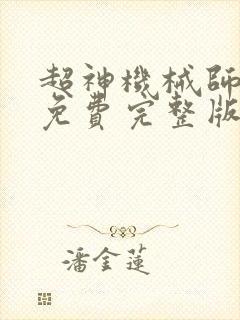 超神機械師
免費完整版
潘金蓮